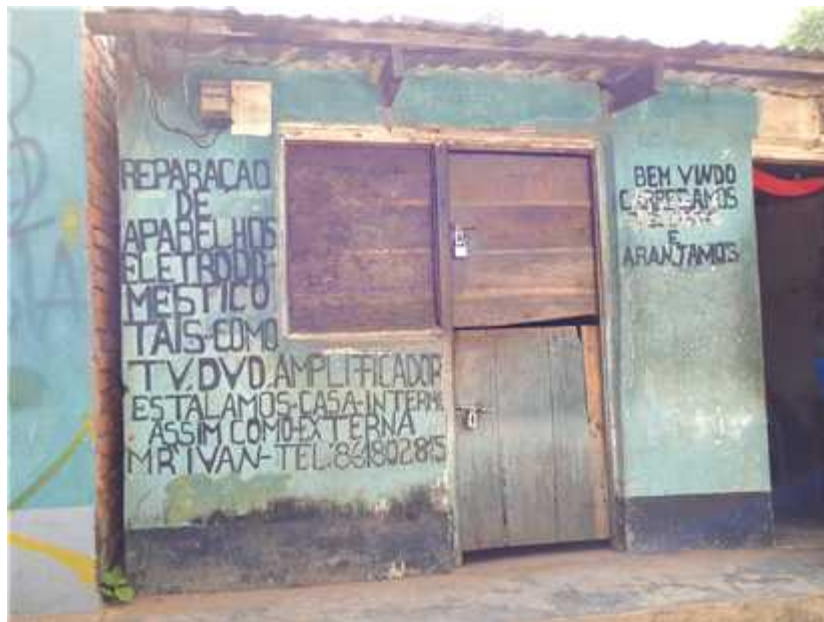 REPARAÇAO
DE
APARELHOS
ELETRODO-
MESTICO
TAIS-COMO
TV.DVD.AMPLIFICADOR
ESTALAMOS-CASA-INTERNA
ASSIM COMO-EXTERNA
MR IVAN-TEL:
BEM VINDO
CARREGAMOS
E
ARANJAMOS